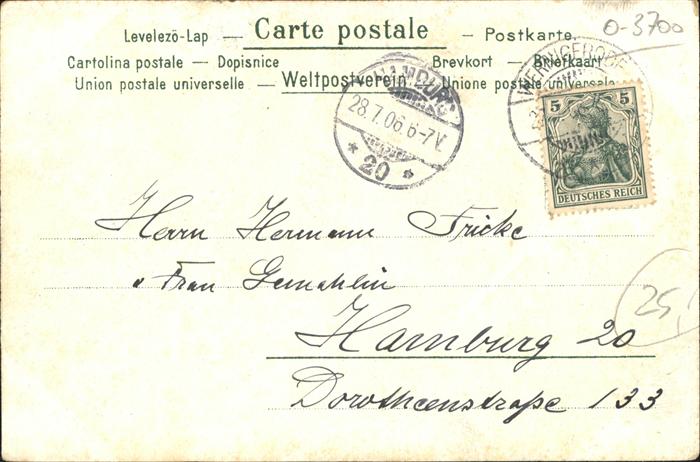 0-3700
Levelezö-Lap — Carte postale — Postkarte.
Cartolina postale — Dopisnice Brevkort — Briefkaart
Union postale universelle — Weltpostverein — Unione postale universale
HAMBURG
28.7.06.6-7V.
* 20 *
WERNIGERODE
5 5
DEUTSCHES REICH
Herrn Hermann Fricke
u Frau Gemahlin
25,
Hamburg 20
Dorotheenstraße 133